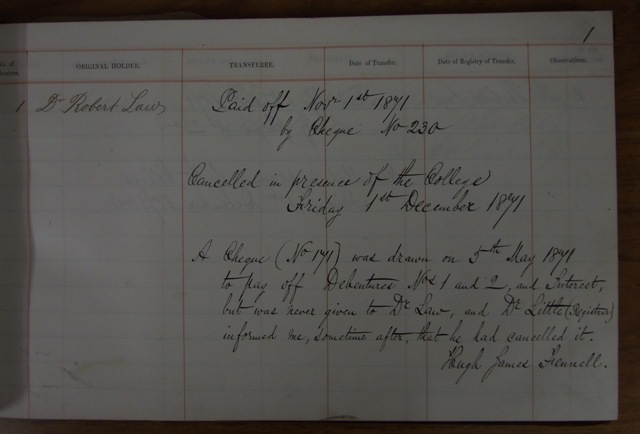 1
No. of
ORIGINAL HOLDER. TRANSFEREE. Date of Transfer. Date of Registry of Transfer. Observations.
1 Dr Robert Law
Paid off Novr 1st 1871
by Cheque No 230
Cancelled in presence of the College
Friday 1st December 1871
A Cheque (No 171) was drawn on 5th May 1871
to pay off Debentures Nos 1 and 2, and Interest,
but was never given to Dr Law, and Dr Little (Registrar)
informed me, sometime after, that he had cancelled it.
Hugh James Fennell.